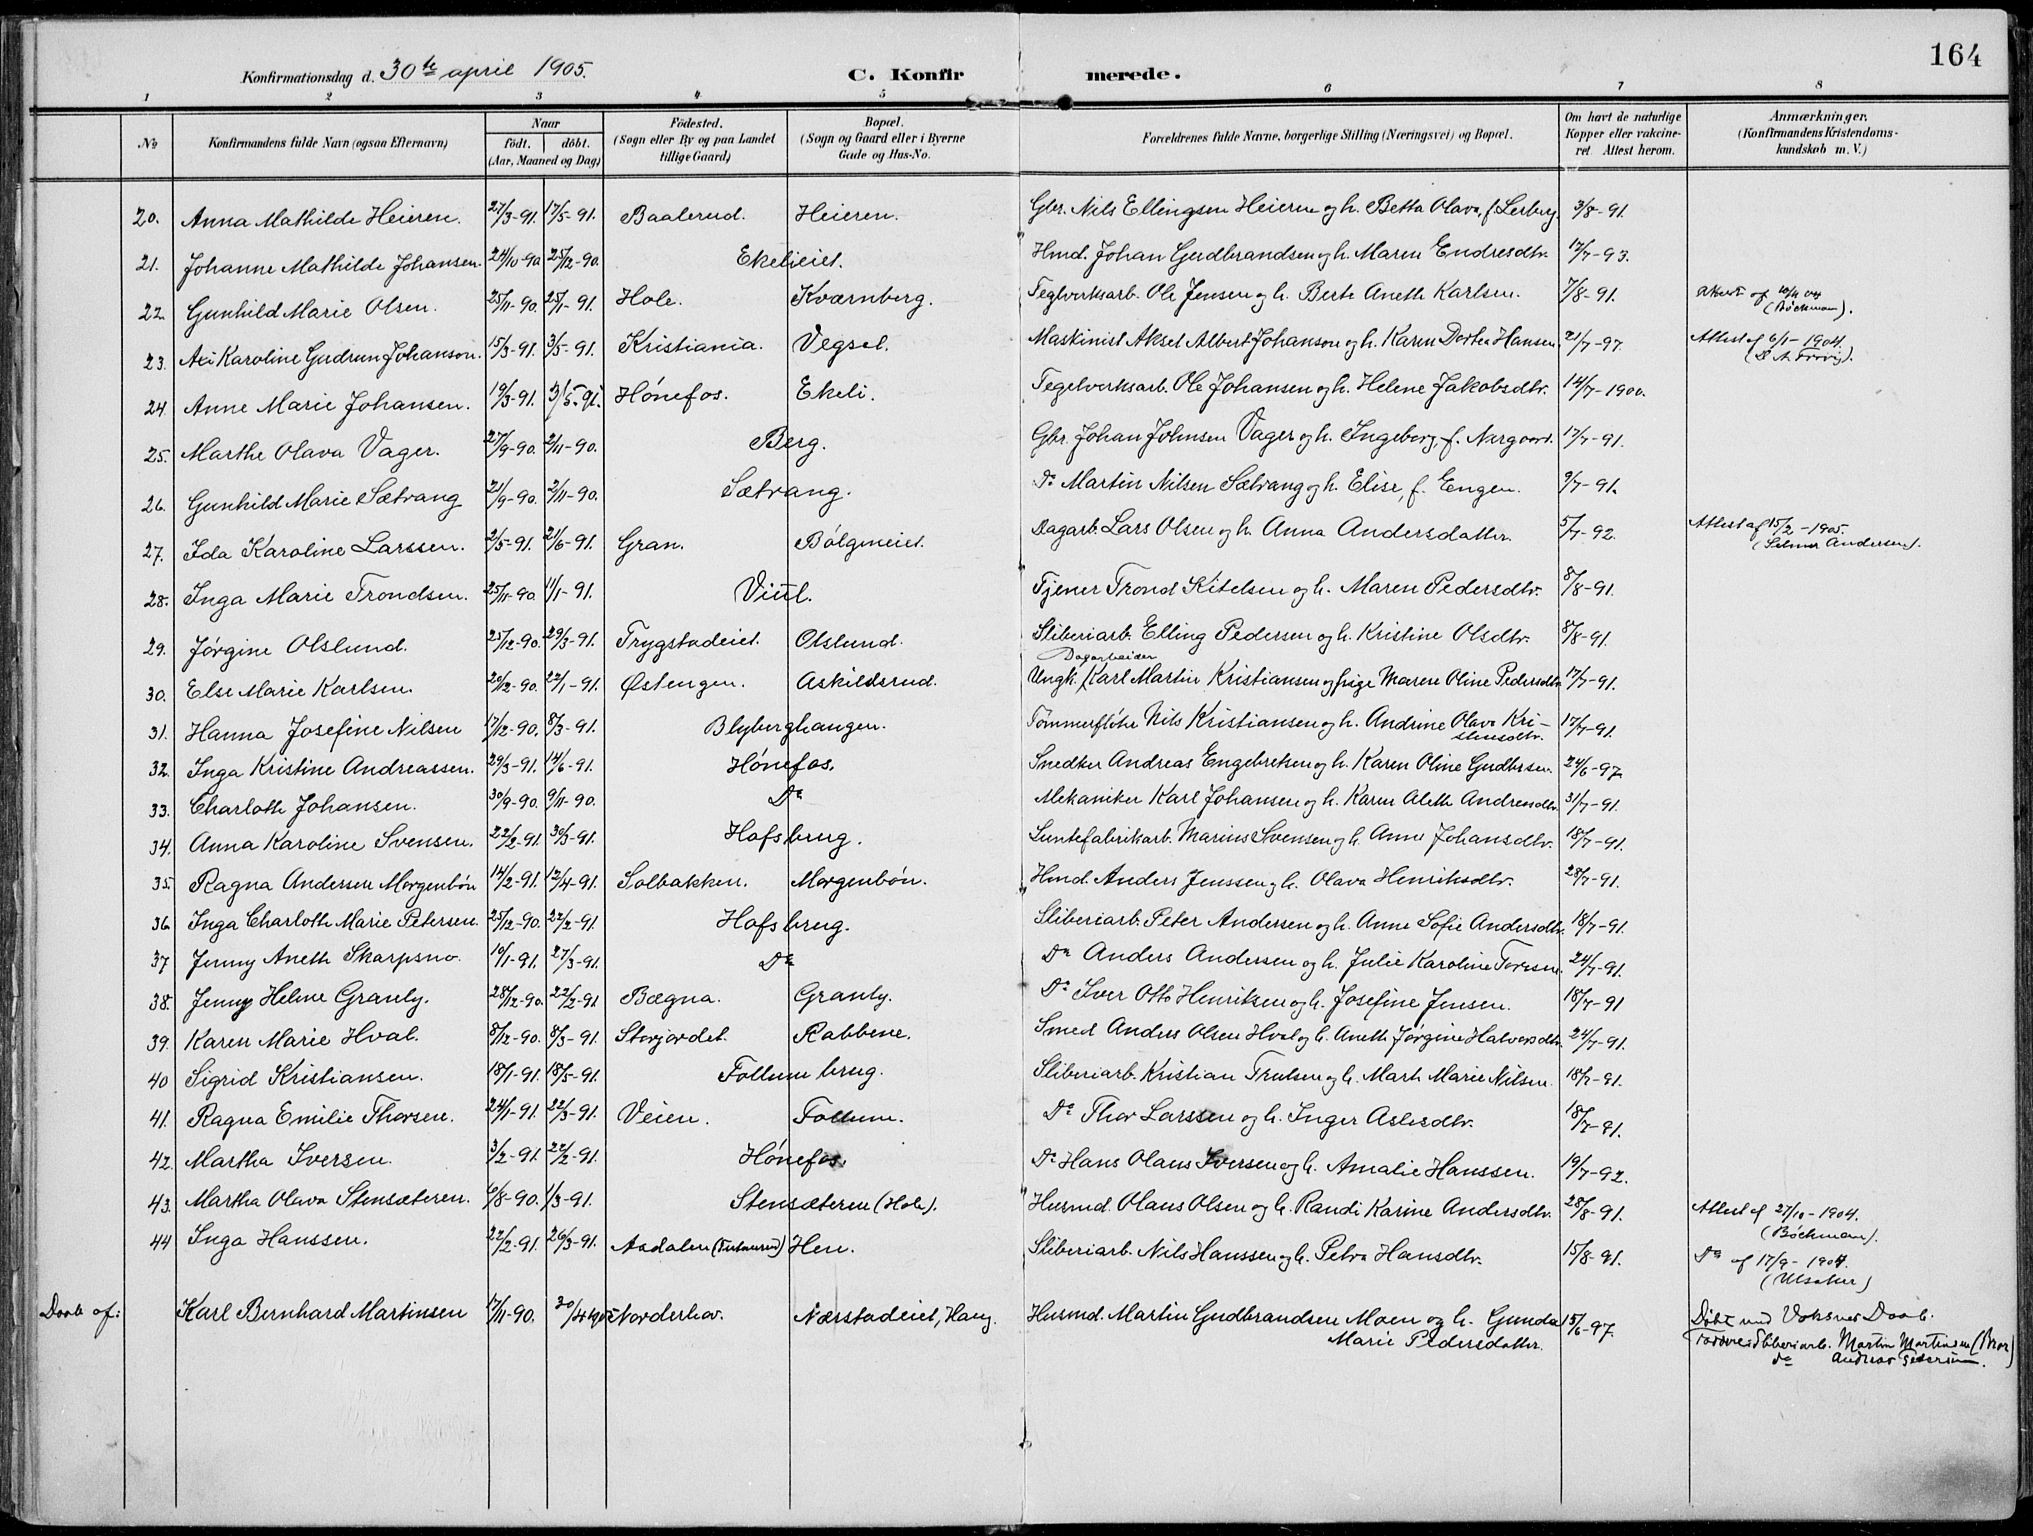 164
Konfirmationsdag d. 30te april 1905.
C. Konfirmerede.
1 2 3 4 5 6 7 8
No
Konfirmandens fulde Navn (ogsaa Efternavn)
Naar
født. døbt.
(Aar, Maaned og Dag)
Fødested.
(Sogn eller By og paa Landet
tillige Gaard)
Bopæl.
(Sogn og Gaard eller i Byerne
Gade og Hus-No.
Forældrenes fulde Navne, borgerlige Stilling (Næringsvei) og Bopæl.
Om havt de naturlige
Kopper eller vakcine-
ret. Attest herom.
Anmærkninger.
(Konfirmandens Kristendoms-
kundskab m. V.)
20. Anna Mathilde Heieren. 27/3-91. 17/5-91. Baalerud. Heieren. Gbr. Nils Ellingsen Heieren og h. Betta Olava, f. Lerberg 3/8-91.
21. Johanne Mathilde Johansen. 24/10-90 25/12-90. Ekelieiet. Hmd. Johan Gudbrandsen og h. Maren Endresdtr. 12/7-93.
22. Gunhild Marie Olsen. 25/11-90. 25/1-91. Hole. Kværnberg. Teglverksarb. Ole Jensen og h. Berte Aneth Karlsen. 7/8-91. Attest af 10/11 04
(Bøckman).
23. Axi Karoline Gudrun Johanson. 15/3-91. 3/5-91. Kristiania. Vegsel. Maskinist Aksel Albert Johanson og h. Karen Dortea Hansen 21/7-97. Attest af 6/1-1904.
24. Anne Marie Johansen. 19/3-91. 3/5-91. Hónefos. Ekeli. Tegelverksarb. Ole Johansen og h. Helene Jakobsdtr. 14/7-1900.
25. Marthe Olava Vager. 27/9-90. 2/11-90. Berg. Gbr. Johan Johnsen Vager og h. Ingeborg, f. Nærgaard. 17/7-91.
26. Gunhild Marie Sætrang 21/9-90. 2/11-90. Sætrang. Do Martin Nilsen Sætrang og h. Elise, f. Engen. 9/7-91.
27. Ida Karoline Larssen. 2/5-91. 21/6-91. Gran. Bølgeneiet. Dagarb. Lars Olsen og h. Anna Andersdatter. 5/7-92. Attest af 15/2-1905.
(Selmer Andersen).
28. Inga Marie Trondsen. 25/11-90 11/1-91. Viul. Tjener Trond Kitelsen og h. Maren Pedersdtr. 8/8-91.
29. Jørgine Olslund. 25/12-90. 29/3-91. Trygstadeiet. Olslund. Sliberiarb. Elling Pedersen og h. Kristine Olsdtr. 8/8-91.
Dagarbeider
30. Else Marie Karlsen. 20/12-90. 22/1-91. Østengen. Askildsrud. Ungk. Karl Martin Kristiansen og pige Maren Oline Pedersdtr 17/7-91.
31. Hanna Josefine Nilsen 17/12-90. 8/3-91. Blyberghangen. Tømmerfløter Nils Kristiansen og h. Andrine Olava Kri-
stensdtr. 17/7-91.
32. Inga Kristine Andreassen. 29/3-91. 14/6-91. Hónefos. Snedker Andreas Engebretsen og h. Karen Oline Gudbrsen. 24/6-97
33. Charloth Johansen. 30/9-90. 9/11-90. Do Mekaniker Karl Johansen og h. Karen Aleth Andresdtr. 31/7-91.
34. Anna Karoline Svensen. 22/2-91. 30/3-91. Hofsbrug. Luntefabrikarb. Marius Svensen og h. Anne Johansdtr. 18/7-91.
35. Ragna Andersen Morgenbøn 14/2-91. 12/4-91. Solbakken. Morgenbøn. Hmd. Anders Jenssen og h. Olava Henriksdtr. 28/7-91.
36 Inga Charloth Marie Petersen. 25/12-90. 22/2-91. Hofsbrug. Sliberiarb. Peter Andersen og h. Anne Sofie Andersdtr. 18/7-91.
37 Jenny Aneth Skarpsno. 10/1-91. 27/3-91. Do Do Anders Andersen og h. Julie Karoline Toresen. 24/7-91.
38. Jenny Helene Granly. 28/12-90. 22/2-91 Bægna. Granly. Do Iver Otto Henriksen og h. Josefine Jensen. 18/7-91
39. Karen Marie Hval. 8/12-90. 8/3-91. Storjordet. Rabbene. Smed Anders Olsen Hval og h. Aneth Jørgine Halvorsdtr. 24/7-91.
40 Sigrid Kristiansen. 18/1-91. 18/5-91. Follum brug. Sliberiarb. Kristian Trulsen og h. Marth Marie Nilsen. 18/7-91.
41. Ragna Emilie Thorsen. 24/1-91. 22/3-91. Veien. Follum. Do Thor Larssen og h. Inger Aslesdtr. 18/7-91.
42. Martha Iversen. 3/2-91. 22/2-91. Hónefos. Do Hans Olaus Iversen og h. Amalie Hanssen. 19/7-92.
43. Martha Olava Stensæteren. 6/8-90. 1/3-91. Stensæteren (Hole). Husmd. Olaus Olsen og h. Randi Karine Andersdtr. 28/8-91. Attest af 27/10-1904.
(Bøckman).
44 Inga Hanssen. 22/2-91. 26/3-91. Aadalen Hen. Sliberiarb. Nils Hanssen og h. Petra Hansdtr. 15/8-91. Do af 17/9-1904.
(Ulsaker)
Daab af: Karl Bernhard Martinsen 17/11-90. 30/4 1905 Norderhov. Næsstadeiet, Haug. Husmd. Martin Gudbrandsen Moen og h. Gunda
Marie Pedersdatter. 15/6-97. Døbt ved Voksnes Daab.
Sliberiarb. Martin Martinsen (Bror)
do Andreas Pedersen.